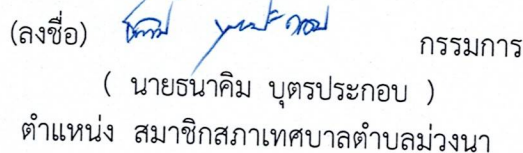 (ลงชื่อ) กรรมการ
( นายธนาคิม บุตรประกอบ )
ตำแหน่ง สมาชิกสภาเทศบาลตำบลม่วงนา